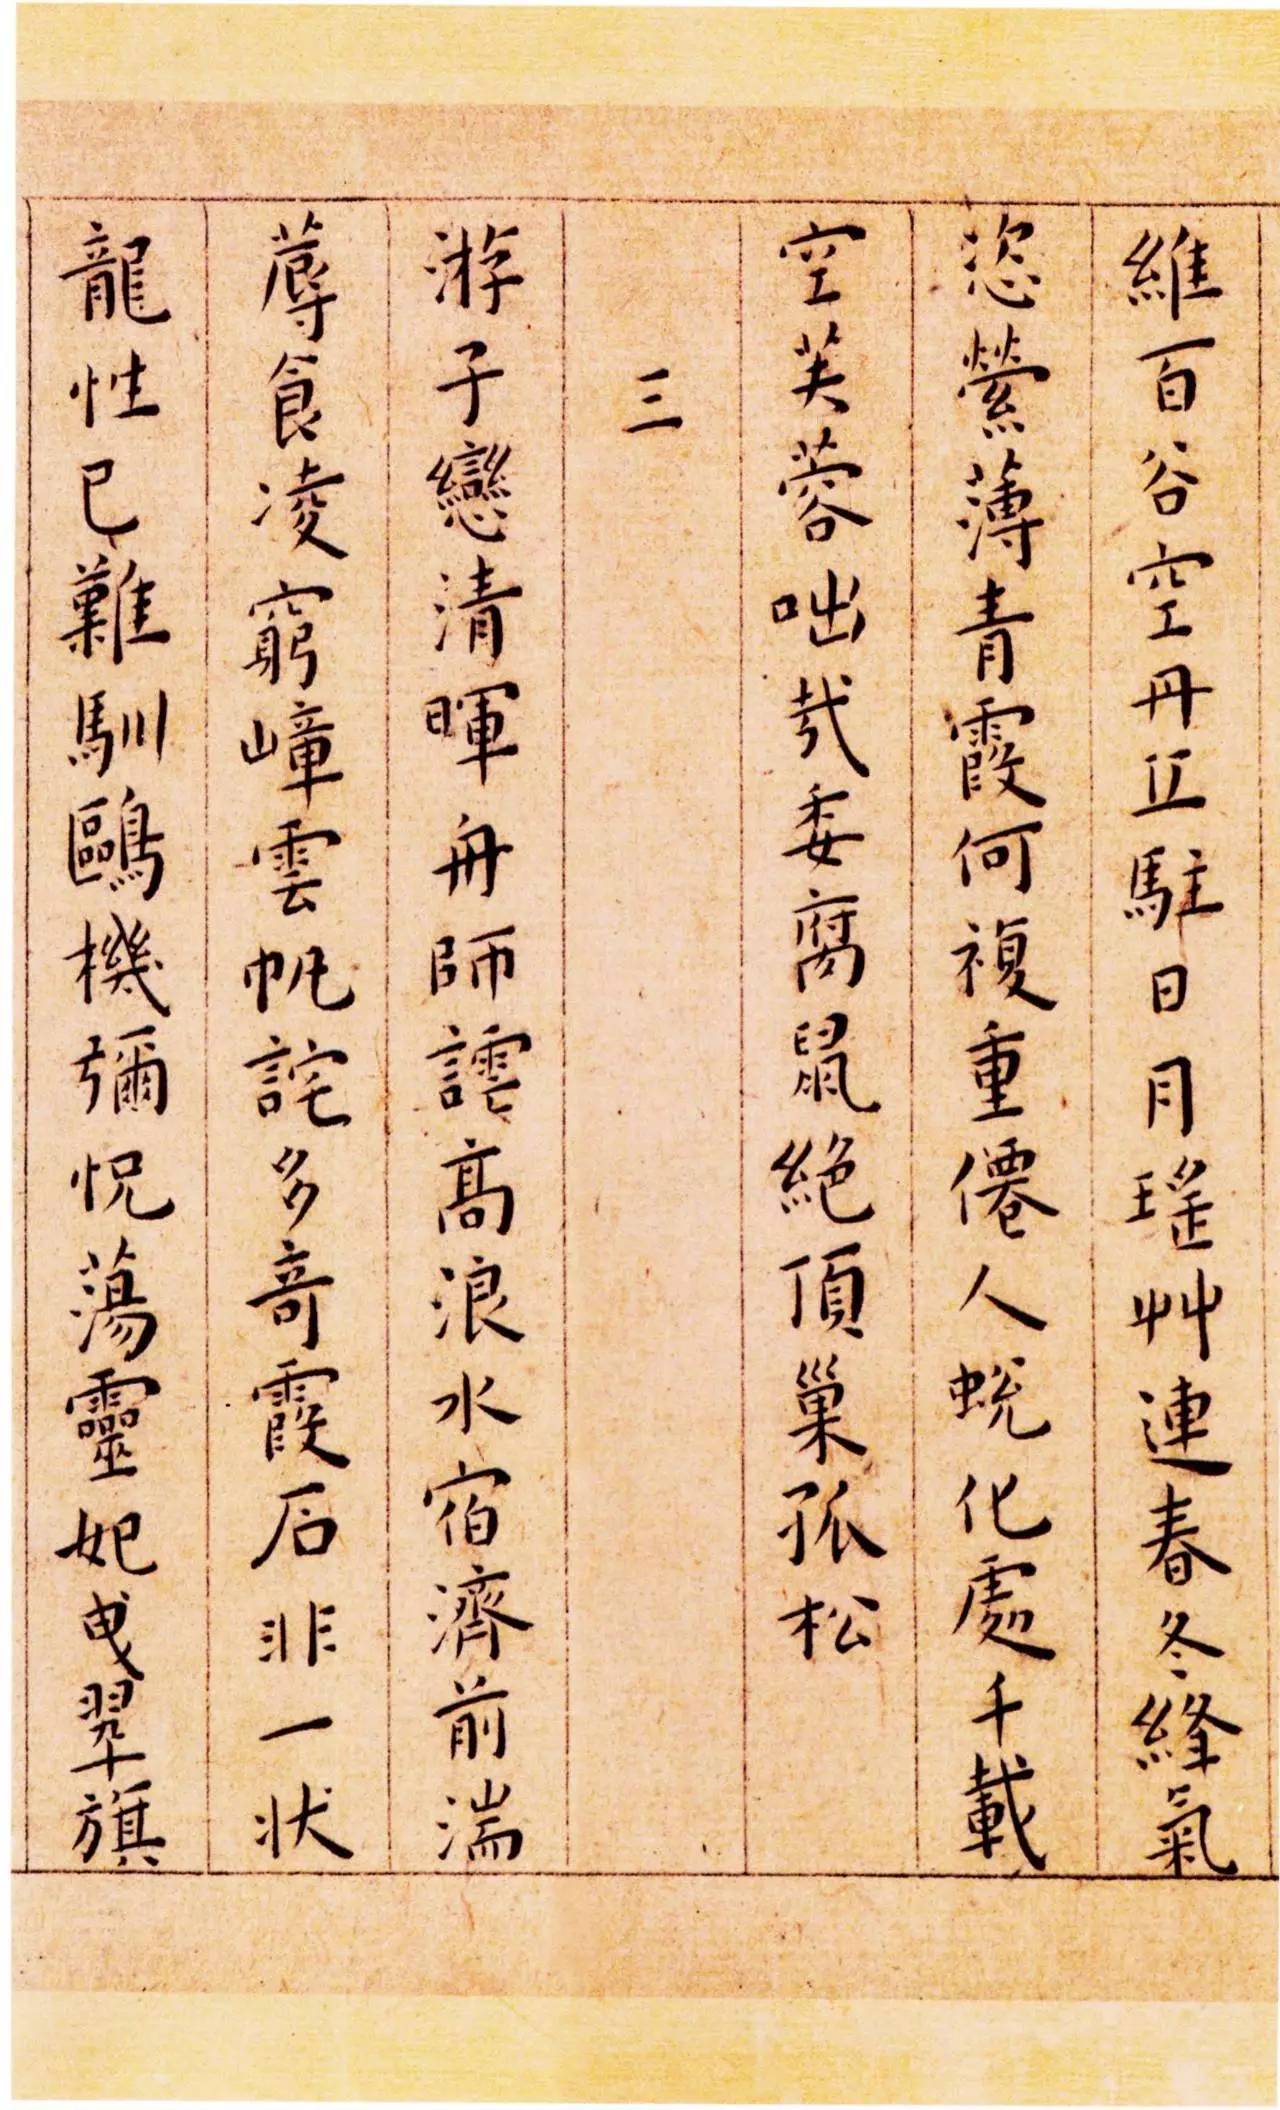 維百谷空丹丘駐日月瑤艸連春冬絳氣
恣縈薄青霞何複重僊人蛻化處千載
空芙蓉咄哉委腐鼠絕頂巢孤松
三
游子戀清暉舟師譳高浪水宿濟前湍
蓐食凌窮嶂雲帆詫多奇霞石非一狀
龍性已難馴鷗機彌怳蕩靈妃曳翠旗